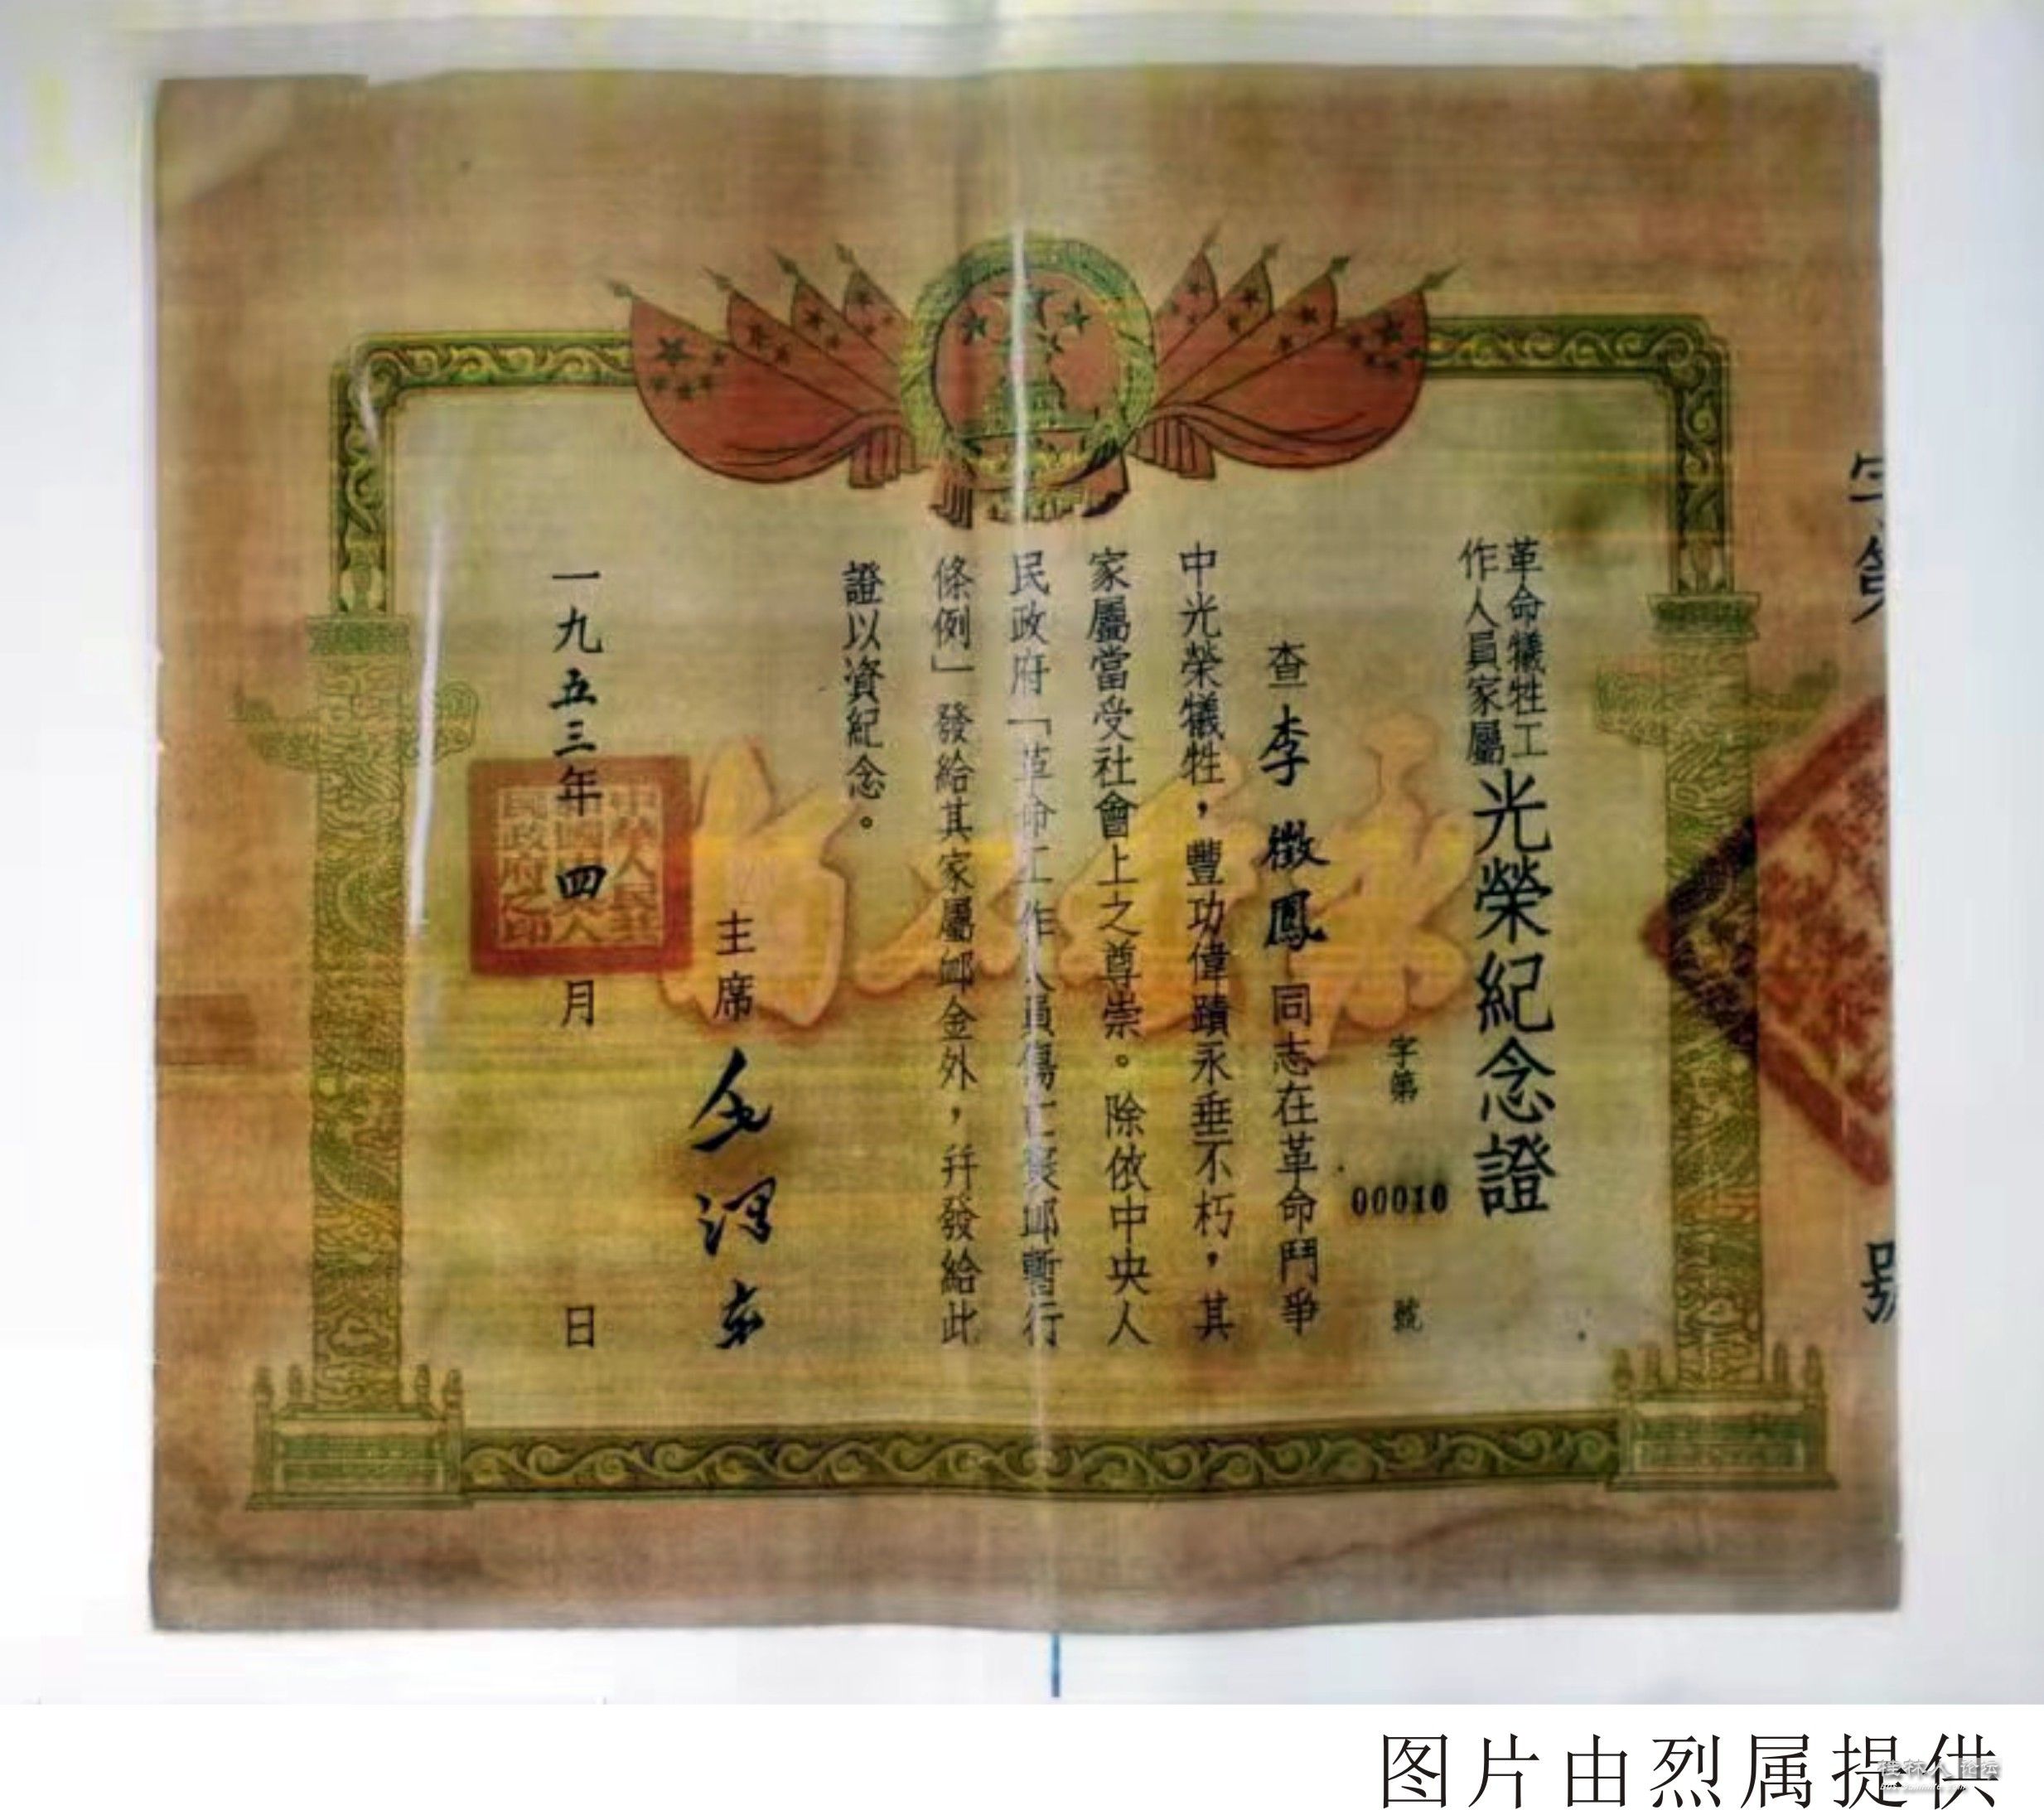 革命犧牲工
作人員家屬
光榮紀念證
字第 00010 號
查李徵鳳同志在革命鬥爭
中光榮犧牲，豐功偉蹟永垂不朽，其
家屬當受社會上之尊崇。除依中央人
民政府「革命工作人員傷亡褒卹暫行
條例」發給其家屬卹金外，幷發給此
證以資紀念。
主席 毛澤東
一九五三年四月 日
中華人民共
和國中央人
民政府之印
永垂不朽
字第 號
图片由烈属提供
桂林人论坛